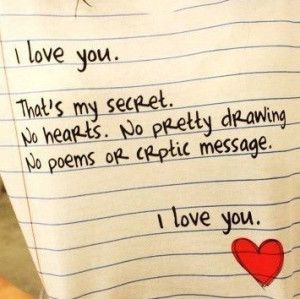 I love you.
That's my secret.
No hearts. No pretty drawing
No poems or crptic message.
I love you.